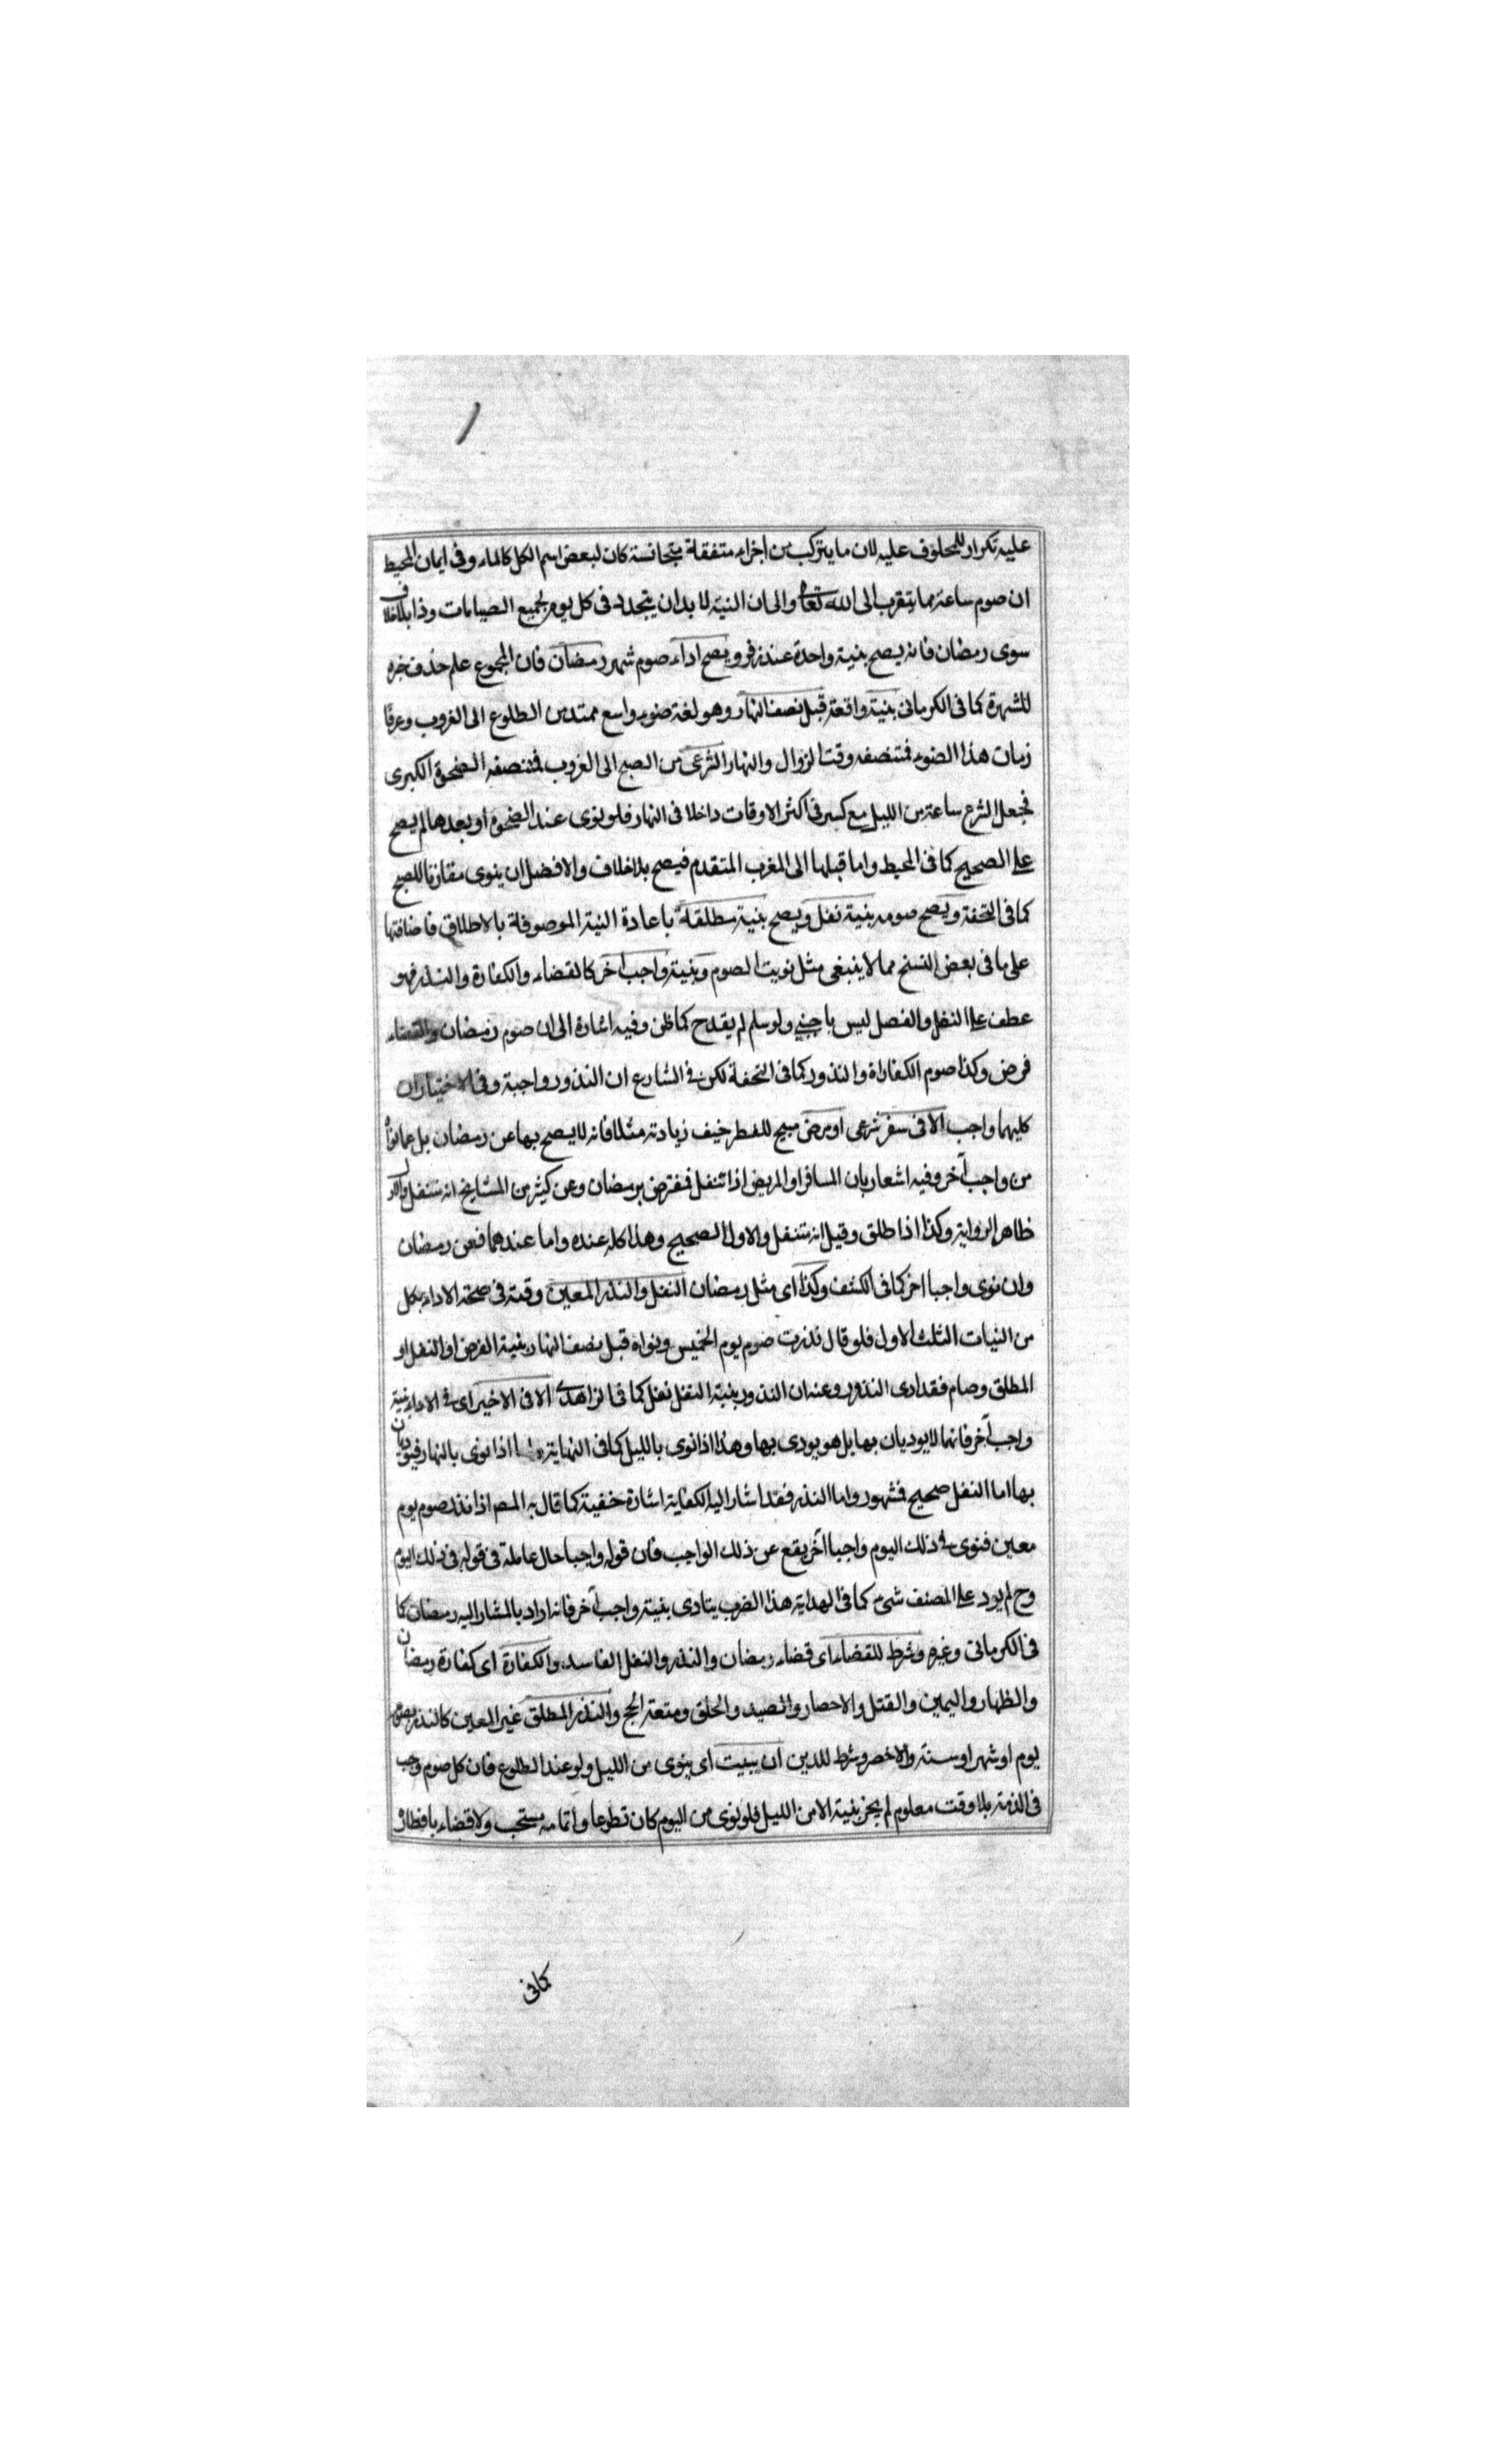 عليه تكرار للمحلوف عليه لان ما يتركب من اجزاء متفقة متجانسة كان لبعض اسم الكل كالماء وفى ايمان المحيط
ان صوم ساعة مما يتقرب الى الله تعالى والى ان النية لا بد ان يتجدد فى كل يوم لجميع الصيامات وذا بلا خلاف
سوى رمضان فانه يصح بنية واحدة عند زفر ويصح اداء صوم شهر رمضان فان المجموع علم حذف جزه
للشهرة كما فى الكرمانى بنية واقعة قبل نصف النهار وهو لغة ضوء واسع ممتد من الطلوع الى الغروب وعرفا
زمان هذا الضوء فمنتصفه وقت الزوال والنهار الشرعى من الصبح الى الغروب فمنتصفه الضحوة الكبرى
فجعل الشرع ساعة من الليل مع كسر فى اكثر الاوقات داخلا فى النهار فلو نوى عند الضحوة او بعدها لم يصح
على الصحيح كما فى المحيط واما قبلها الى المغرب المتقدم فيصح بلا خلاف والافضل ان ينوى مقارنا للصبح
كما فى التحفة ويصح صومه بنية نفل ويصح بنية مطلقة باعادة النية الموصوفة بالاطلاق فاضافتها
على ما فى بعض النسخ مما لا ينبغى مثل نويت الصوم وبنية واجب اخر كالقضاء والكفارة والنذر فهو
عطف على النفل والفصل ليس باجنبى ولو سلم لم يقدح كما ظن وفيه اشارة الى ان صوم رمضان والقضاء
فرض وكذا صوم الكفاراة والنذور كما فى التحفة لكن فى الشارع ان النذور واجبة وفى الاختيار ان
كليهما واجب الا فى سفر شرعى او مرض مبيح للفطر خيف زيادته مثلا فانه لا يصح بها عن رمضان بل عما نواه
من واجب آخر وفيه اشعار بان المسافر او المريض اذا تنفل فمفترض برمضان وعن كثير من المشايخ انه متنفل والاول
ظاهر الرواية وكذا اذا طلق وقيل انه متنفل والاول الصحيح وهذا كله عنده واما عندهما فعن رمضان
وان نوى واجبا اخر كما فى الكشف وكذا اى مثل رمضان النفل والنذر المعين وقته فى صحة الاداء بكل
من النيات الثلث الاول فلو قال نذرت صوم يوم الخميس ونواه قبل نصف النهار بنية الفرض او النفل او
المطلق وصام فقد ادى النذور وعنه ان النذور بنية النفل نفل كما فى الزاهدى الا فى الاخير اى فى الاداء بنية
واجب آخر فانهما لا يوديان بها بل هو يودى بها وهذا اذا نوى بالليل كما فى النهاية واما اذا نوى بالنهار فيوديان
بها اما النفل صحيح فشهور واما النذر فقد اشار اليه الكفاية اشارة خفية كما قال به المصر اذا نذر صوم يوم
معين فنوى فى ذلك اليوم واجبا آخر يقع عن ذلك الواجب فان قوله واجبا حال عاملة فى قوله فى ذلك اليوم
وح لم يود على المصنف شىء كما فى الهداية هذا الضرب يتادى بنية واجب آخر فانه اراد بالمشار اليه رمضان كما
فى الكرمانى وغيره وشرط للقضاء اى قضاء رمضان والنذر والنفل الفاسد والكفارة اى كفارة رمضان
والظهار واليمين والقتل والاحصار والصيد والحلق ومتعة الحج والنذر المطلق غير المعين كالنذر بصوم
يوم او شهر او سنة والاخصر وشرط للدين ان يبيت اى ينوى من الليل ولو عند الطلوع فان كل صوم وجب
فى الذمة بلا وقت معلوم لم يجز بنية الا من الليل فلو نوى من اليوم كان تطوعا واتمامه مستحب ولا قضاء بافطاره
كما فى